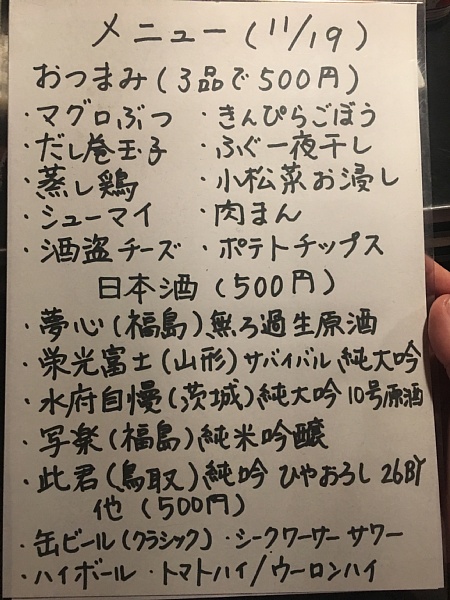 メニュー (11/19)
おつまみ (3品で500円)
・マグロぶつ ・きんぴらごぼう
・だし巻玉子 ・ふぐ一夜干し
・蒸し鶏 ・小松菜お浸し
・シューマイ ・肉まん
・酒盗チーズ ・ポテトチップス
日本酒 (500円)
・夢心(福島)無ろ過生原酒
・栄光富士(山形)サバイバル 純大吟
・水府自慢(茨城)純大吟 10号原酒
・写楽(福島)純米吟醸
・此君(鳥取)純吟 ひやおろし 26BY
他 (500円)
・缶ビール(クラシック) ・シークワーサーサワー
・ハイボール ・トマトハイ/ウーロンハイ